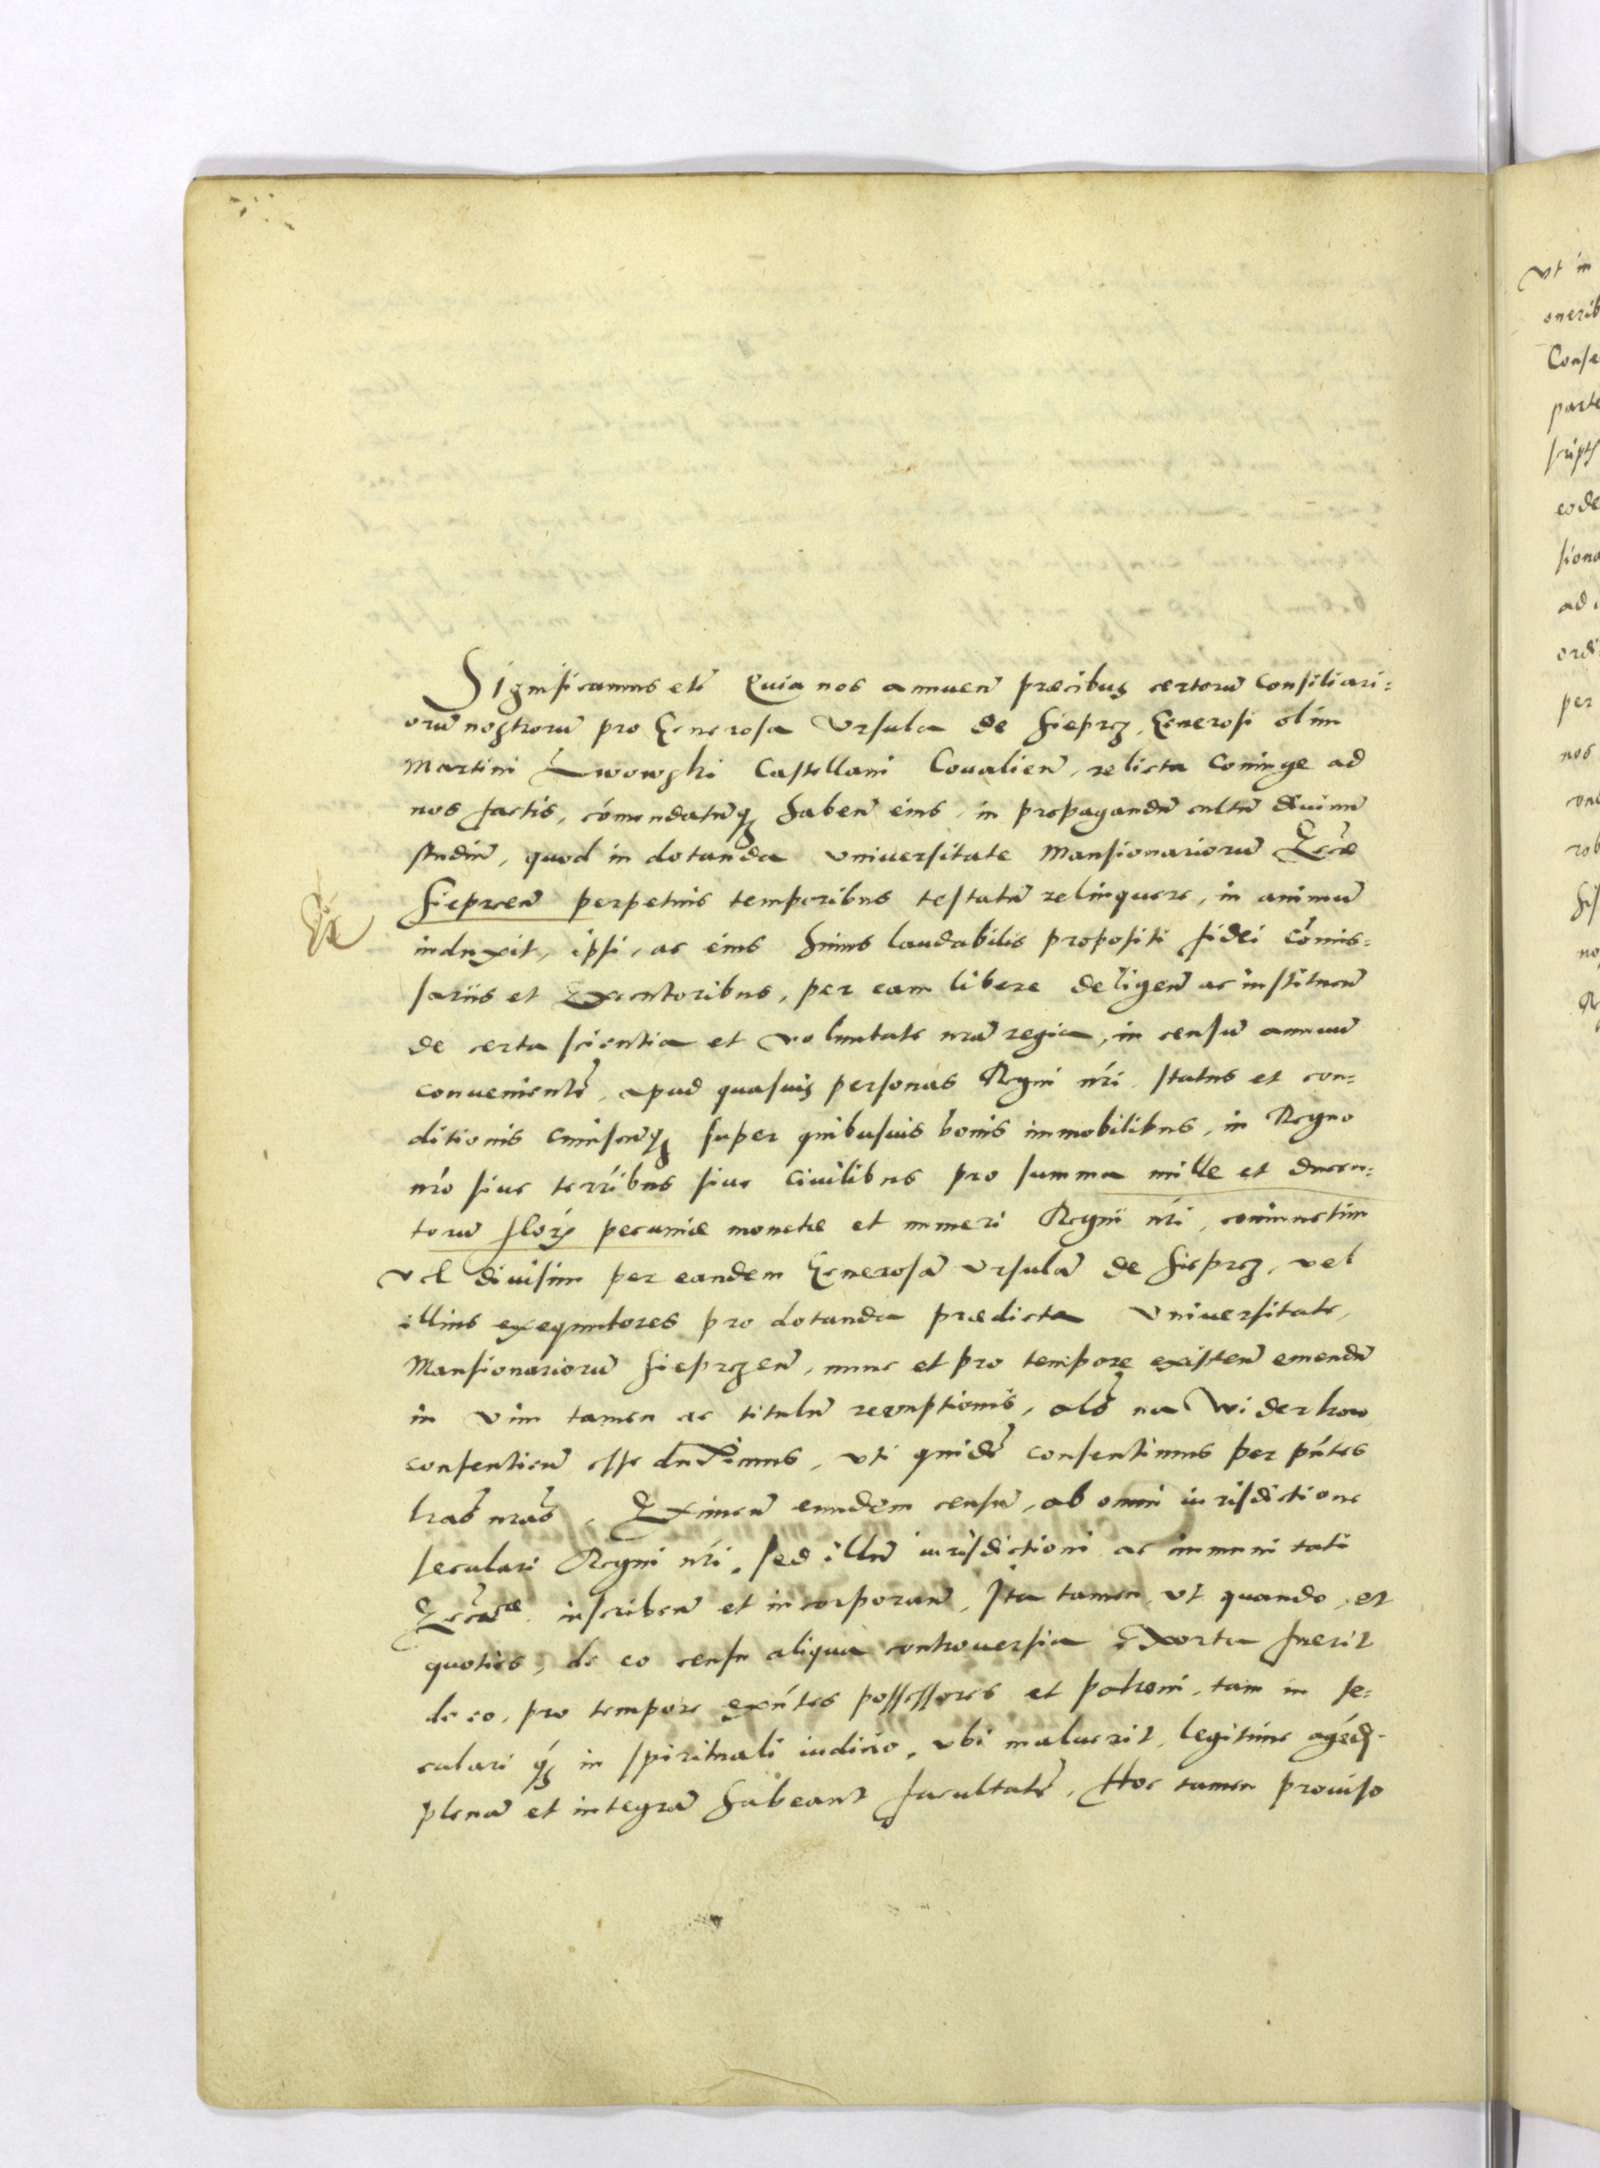 Significamus etc̃ Quia nos annuen̄ præcibus certorū Consiliari=
orū nostrorū pro Generosa Vrsula de Sieprcz, Generosi olim
Martini Lwowski Castellani Coualien̄, relicta Coniuge ad
nos factis, cōmendatūq₃ haben̄ eius, in propagandū cultū diuinū
studiū, quod in dotanda vniuersitate Mansionariorū Eccl̄iæ
Sieprcen̄ perpetuis temporibus testatū relinquere, in animū
induxit, ipsi, ac eius huius laudabilis propositi fidei cōmis=
sariis et Executoribus, per eam libere deligen̄ ac instituen̄
de certa scientia et voluntate nr̄a regia, in censū annuū
conuenientē, apud quasuis personas Regni nr̄i, status et con=
ditionis cuiuscunq₃ super quibusuis bonis immobilibus, in Regno
nr̄o siue terr̄ibus siue Ciuilibus pro summa mille et ducen=
torū flor̄ pecuniæ monetæ et numeri Regni nr̄i, coniunctim
vel diuisim per eandem Generosā Vrsulā de Sieprcz, vel
illius exequutores pro dotanda prædicta Vniuersitate,
Mansionariorū Sieprczen̄, nunc et pro tempore existen̄ emendū
in vim tamen ac titulū reemptionis, als̄ na Widerkow
consentien̄ esse duximus, vti quidē consentimus per pn̄tes
lr̄as nr̄as, Eximen̄ eundem censū, ab omni iurisdictione
seculari Regni nr̄i, sed illū iurisdictioni ac immunitati
Eccl̄iæ inscriben̄ et incorporan̄, Ita tamen, vt quando, et
quoties, de eo censu aliqua controuersia exorta fuerit
de eo, pro tempore exn̄tes possessores et patroni, tam in se=
culari q̄ in spirituali iudicio, vbi maluerit, legitime agēdi
plenā et integrā habeant facultatē, Hoc tamen prouiso